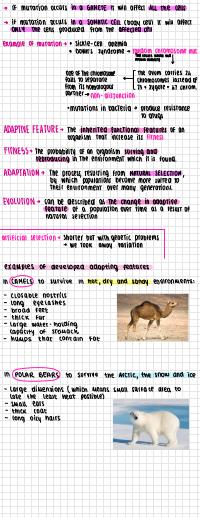 → if mutation occurs in a GAMETE it will affect ALL the cells
→ if mutation occurs in a SOMATIC CELL (body cell) it will affect
ONLY the cells produced from the affected cell
Example of mutation → • sickle-cell anemia
• down's syndrome → random chromosome mut
one of the chromosome
fails to separate
from its homologous
partner → non-disjunction
The ovum carries 24
chromosomes instead of
23 → zygote = 47 chrom.
• mutations in bacteria → produce resistance
to drugs
ADAPTIVE FEATURE → The inherited functional features of an
organism that increase its fitness.
FITNESS → The probability of an organism surviving and
reproducing in the environment which it is found.
ADAPTATION → The process resulting from NATURAL SELECTION,
by which populations become more suited to
their environment over many generations.
EVOLUTION → can be described as The change in adaptive
feature of a population over time as a result of
natural selection
artificial selection → shorter but with genetic problems
→ we took away variation
examples of developed adapting features
in CAMELS to survive in hot, dry and sandy environments:
- closable nostrils
- long eyelashes
- broad feet
- thick fur
- large water-holding
capacity of stomach
- humps that contain fat
in POLAR BEARS to survive the arctic, the snow and ice
- Large dimensions (which means small surface area to
lose the least heat possible)
- small ears
- thick coat
- long oily hairs